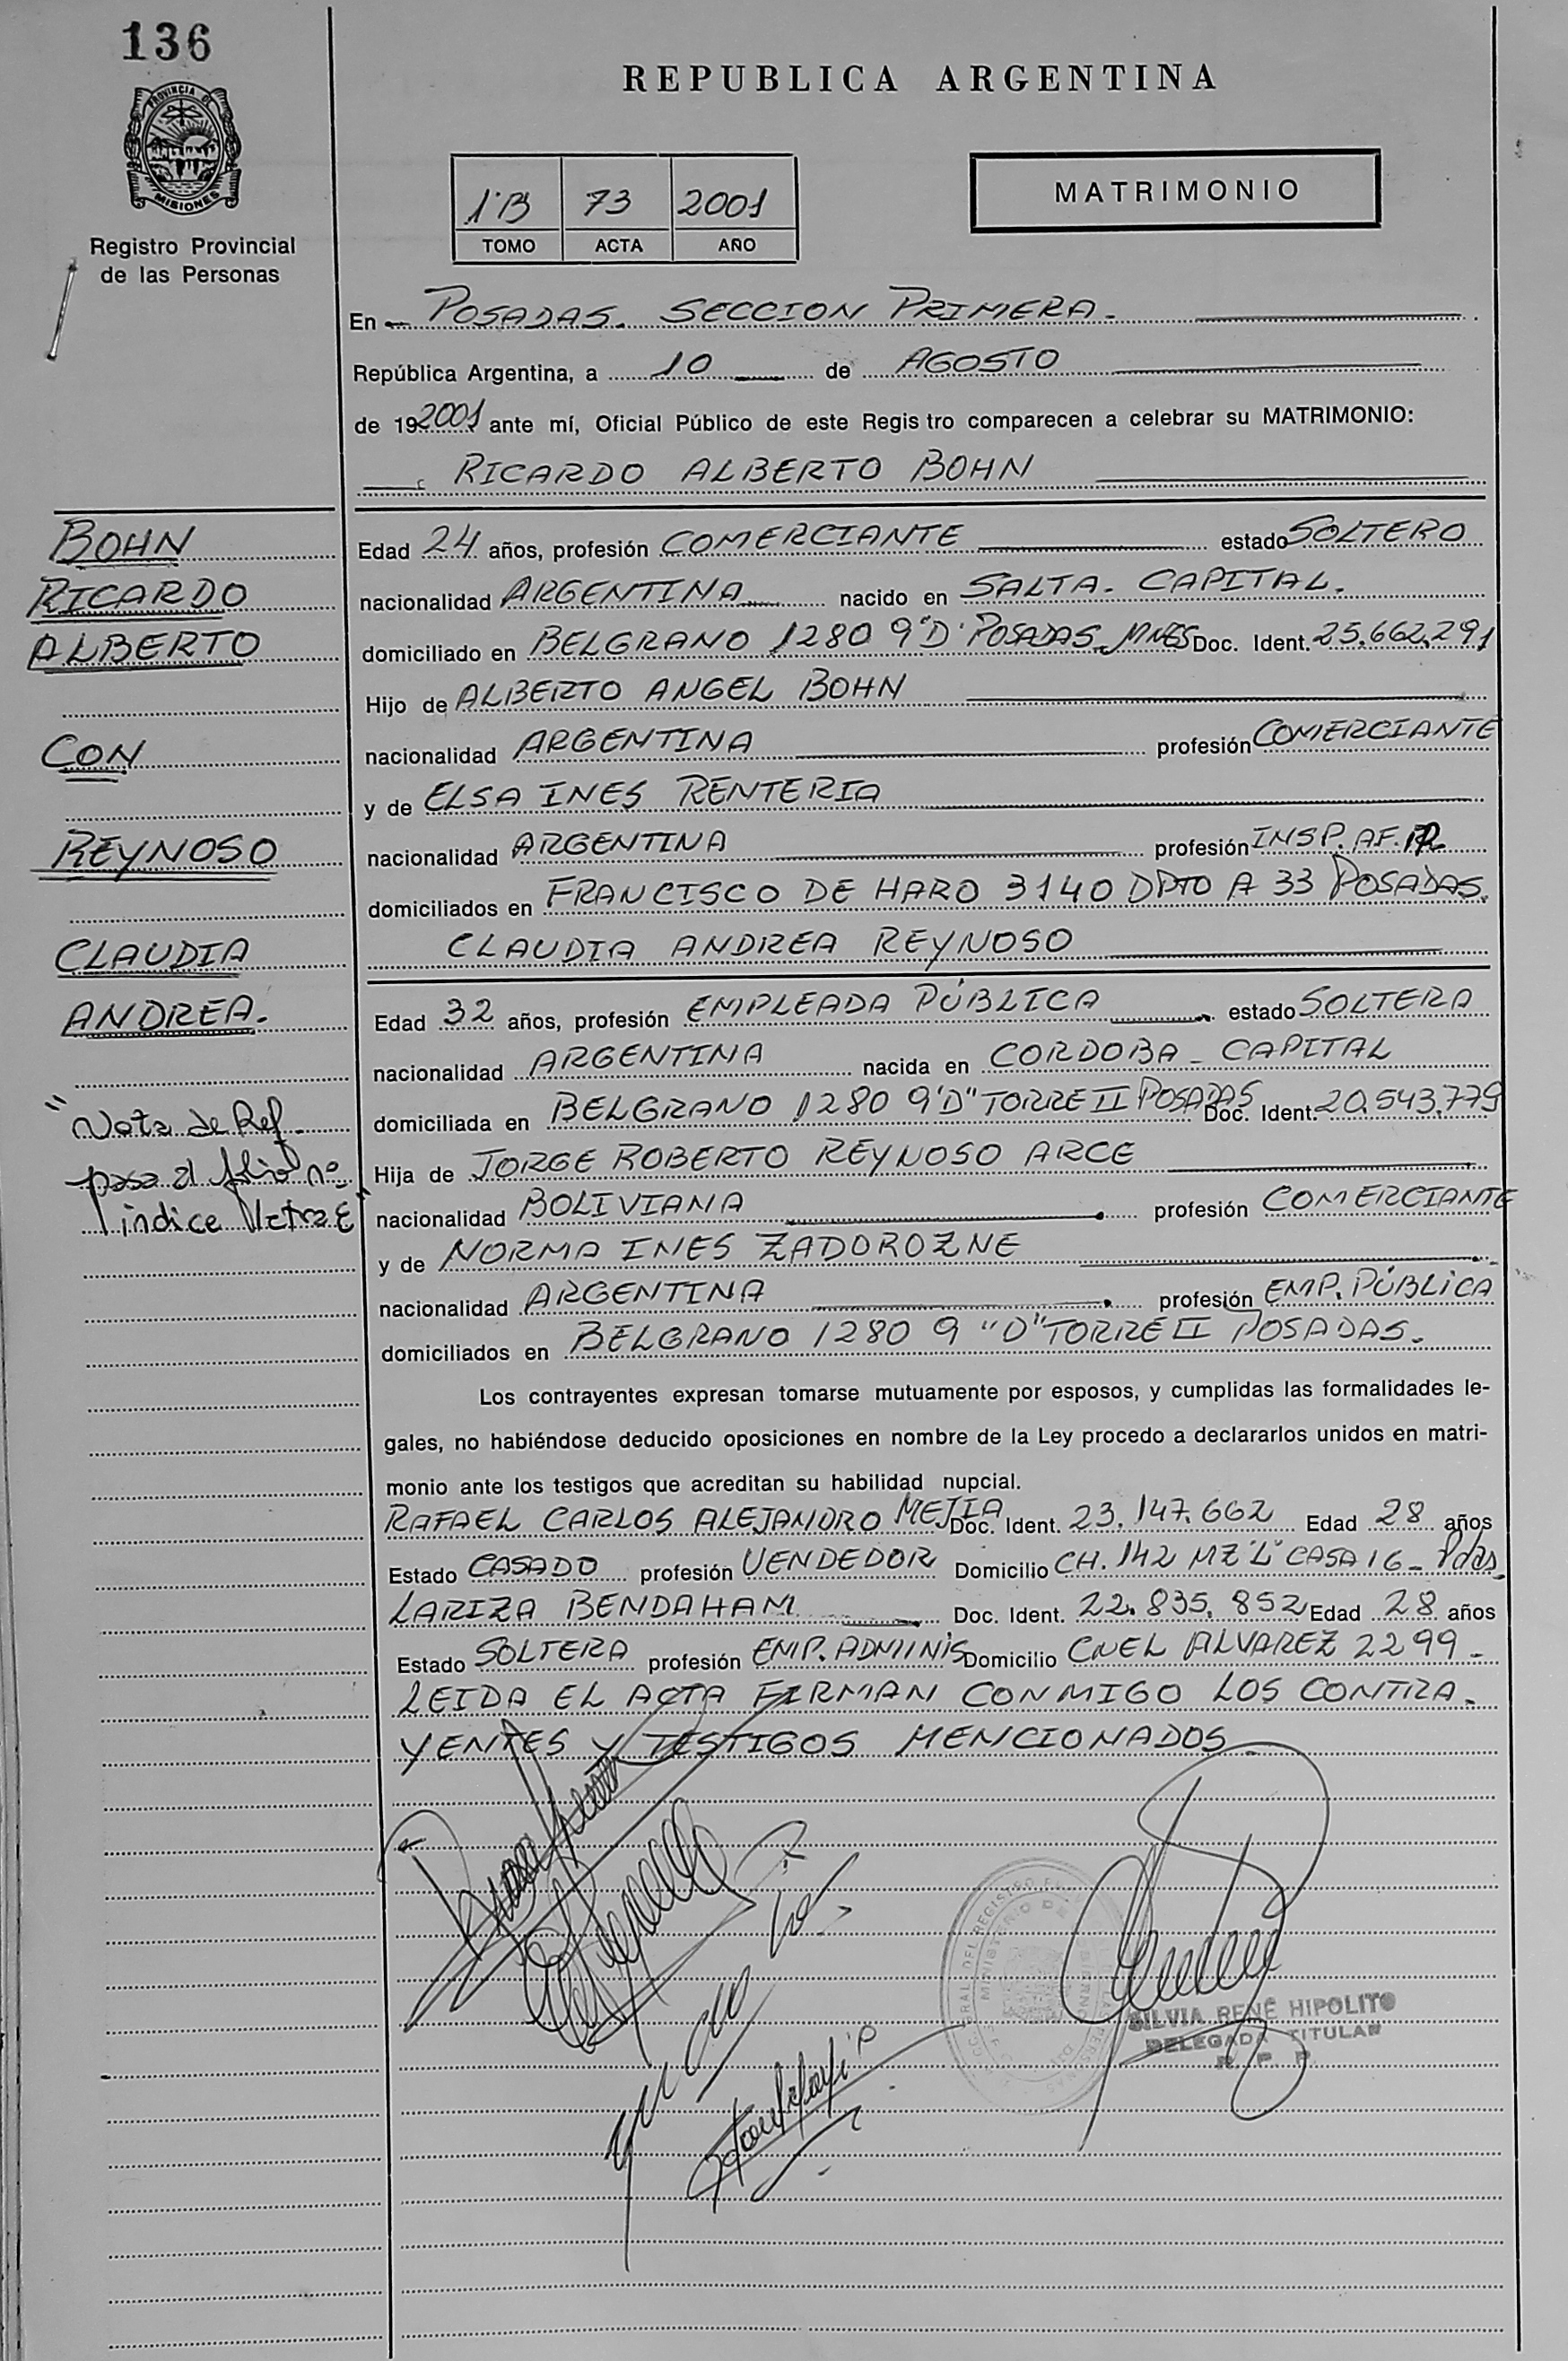 136
REPUBLICA ARGENTINA
PROVINCIA DE
MISIONES
Registro Provincial
de las Personas
1ºB 73 2001
TOMO ACTA AÑO
MATRIMONIO
En POSADAS. SECCION PRIMERA.
República Argentina, a 10 de AGOSTO
de 19 2001 ante mí, Oficial Público de este Regis tro comparecen a celebrar su MATRIMONIO:
RICARDO ALBERTO BOHN
BOHN
RICARDO
ALBERTO
CON
REYNOSO
CLAUDIA
ANDREA.
"Nota de Ref.
pasa al folio nº
indice letra E"
Edad 24 años, profesión COMERCIANTE estado SOLTERO
nacionalidad ARGENTINA nacido en SALTA. CAPITAL.
domiciliado en BELGRANO 1280 9"D" POSADAS. MNES Doc. Ident. 25.662.291
Hijo de ALBERTO ANGEL BOHN
nacionalidad ARGENTINA profesión COMERCIANTE
y de ELSA INES RENTERIA
nacionalidad ARGENTINA profesión INSP. AF.
domiciliados en FRANCISCO DE HARO 3140 DPTO A 33 POSADAS.
CLAUDIA ANDREA REYNOSO
Edad 32 años, profesión EMPLEADA PÚBLICA estado SOLTERA
nacionalidad ARGENTINA nacida en CORDOBA - CAPITAL
domiciliada en BELGRANO 1280 9"D" TORRE II POSADAS Doc. Ident. 20.543.779
Hija de JORGE ROBERTO REYNOSO ARCE
nacionalidad BOLIVIANA profesión COMERCIANTE
y de NORMA INES ZADOROZNE
nacionalidad ARGENTINA profesión EMP. PÚBLICA
domiciliados en BELGRANO 1280 9 "D" TORRE II POSADAS.
Los contrayentes expresan tomarse mutuamente por esposos, y cumplidas las formalidades le-
gales, no habiéndose deducido oposiciones en nombre de la Ley procedo a declararlos unidos en matri-
monio ante los testigos que acreditan su habilidad nupcial.
RAFAEL CARLOS ALEJANDRO MEJIA Doc. Ident. 23.147.662 Edad 28 años
Estado CASADO profesión VENDEDOR Domicilio CH. 142 MZ "L" CASA 16 - Pdas.
LARIZA BENDAHAM Doc. Ident. 22.835.852 Edad 28 años
Estado SOLTERA profesión EMP. ADMINIS Domicilio CNEL ALVAREZ 2299 -
LEIDA EL ACTA FIRMAN CONMIGO LOS CONTRA-
YENTES Y TESTIGOS MENCIONADOS
SILVIA RENÉ HIPOLITO
DELEGADA TITULAR
R. P. P.